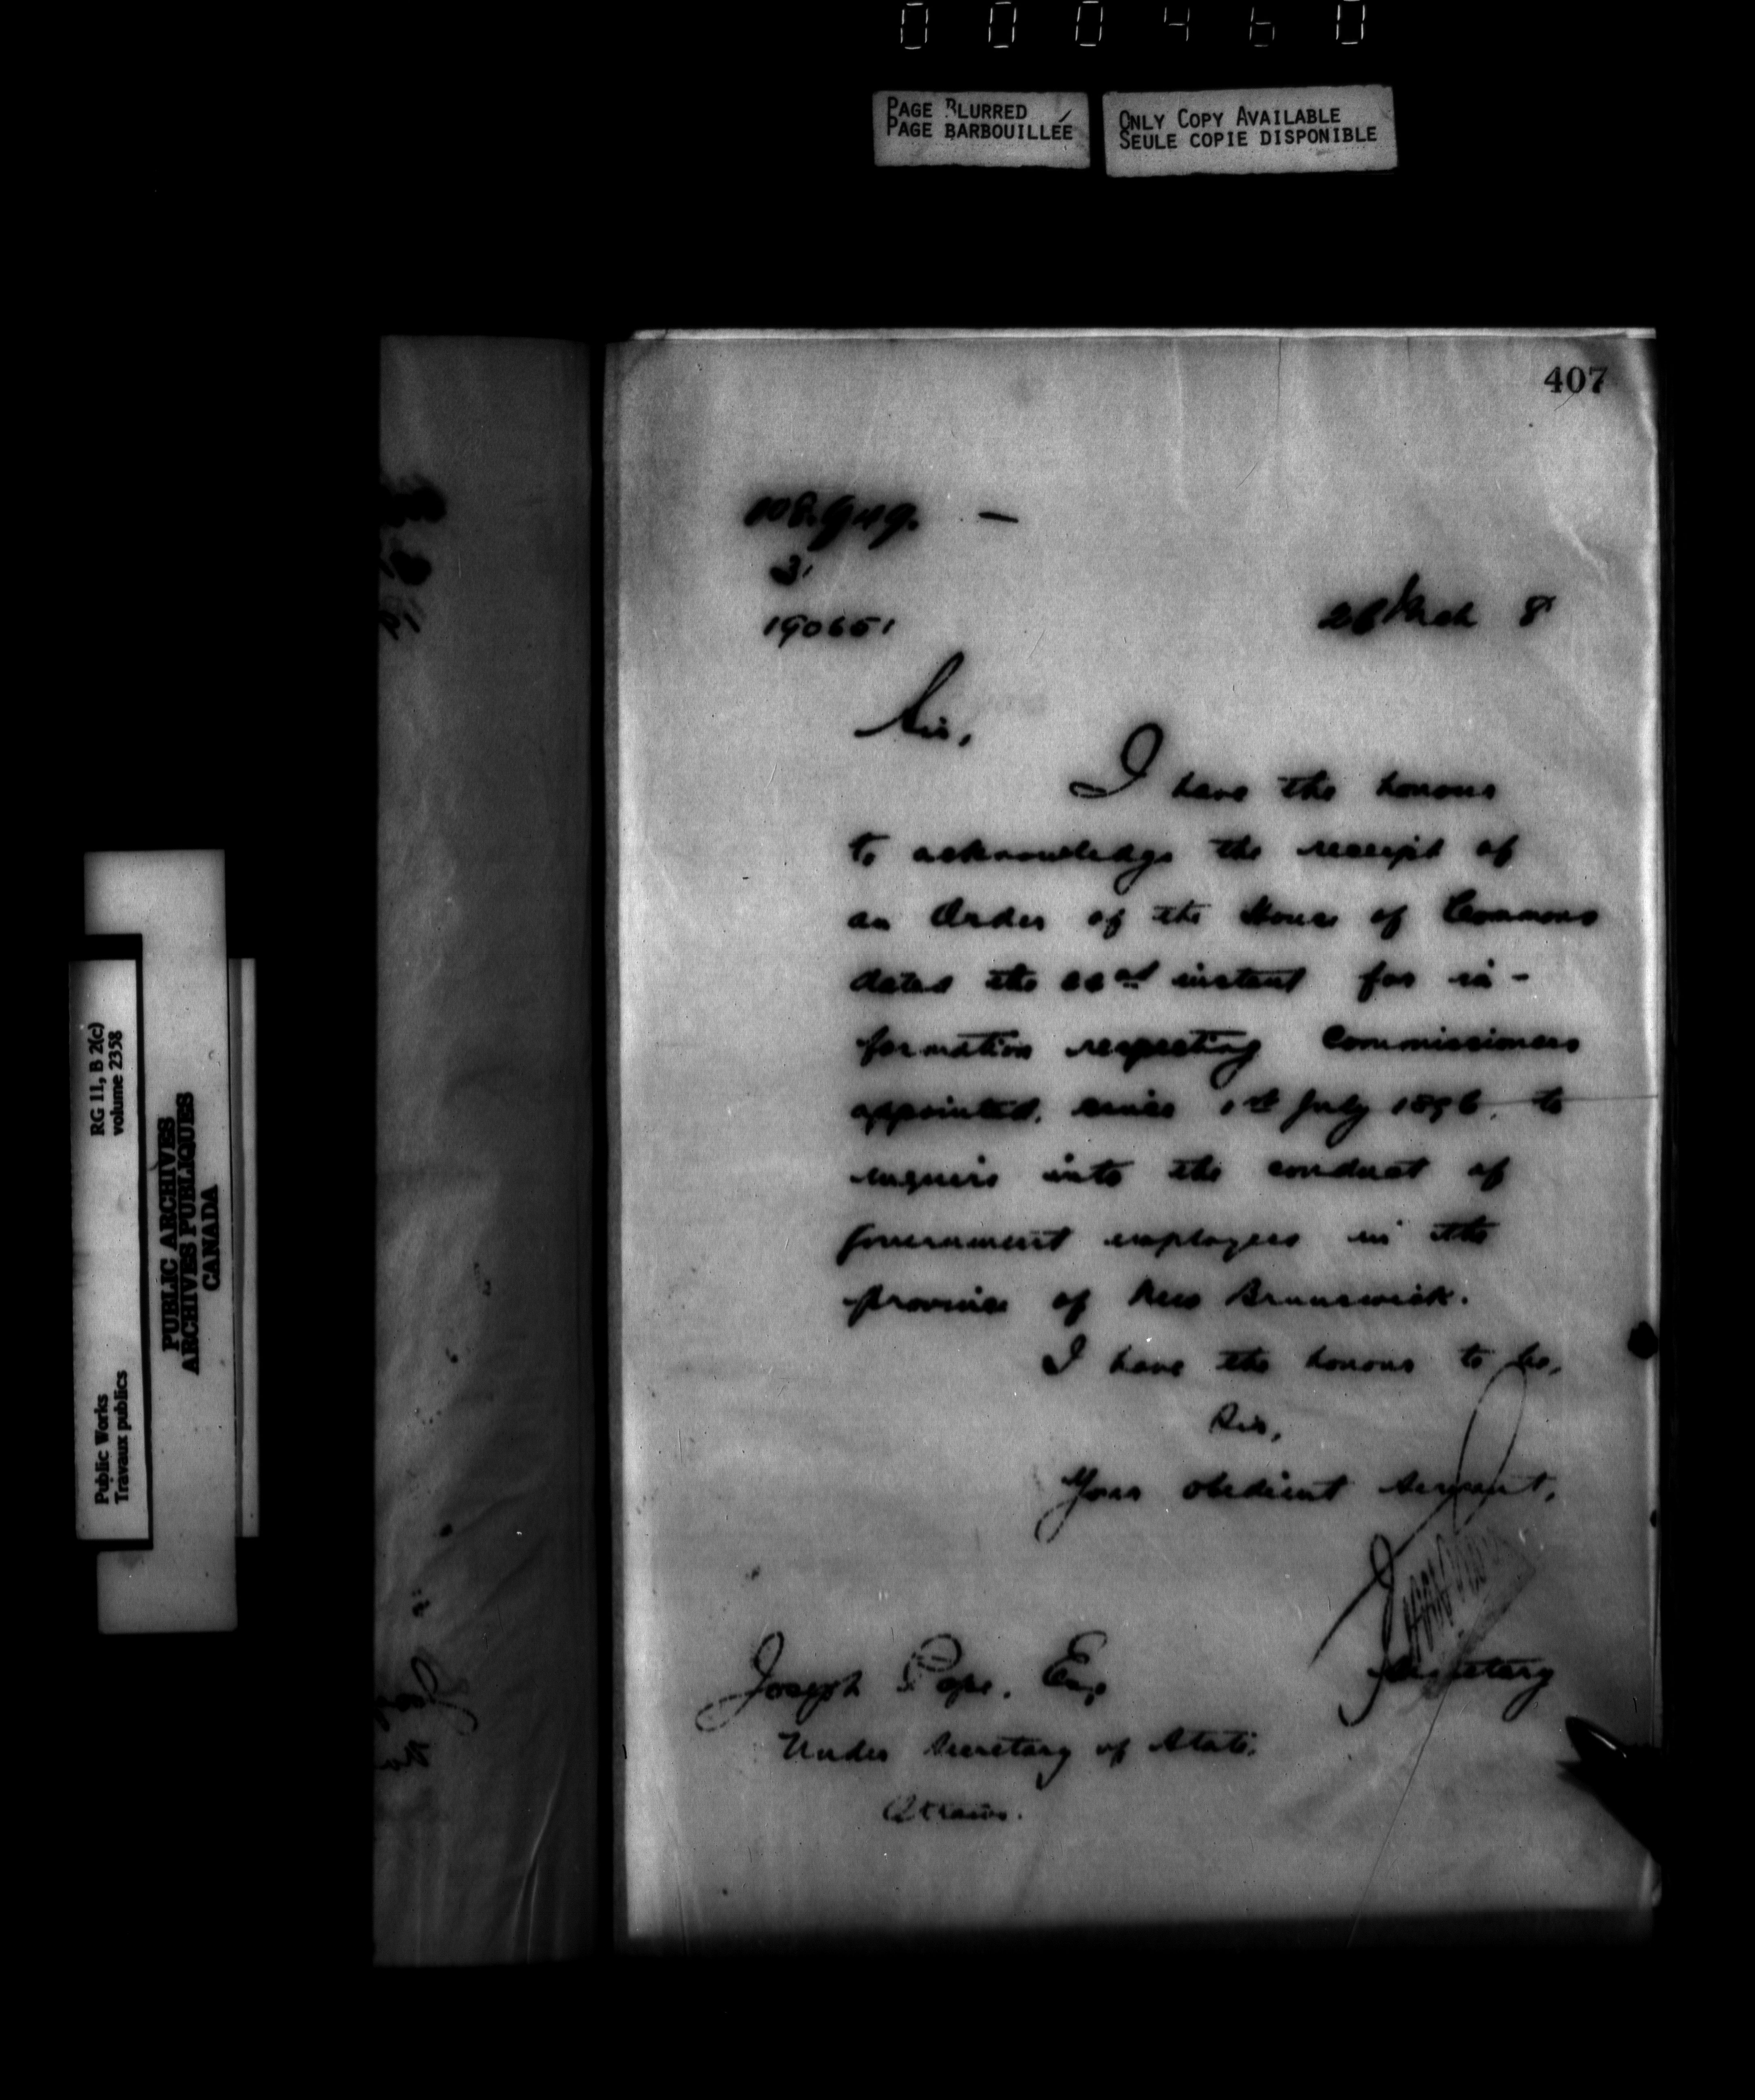 000460
PAGE BLURRED
PAGE BARBOUILLÉE
ONLY COPY AVAILABLE
SEULE COPIE DISPONIBLE
407
3,
190651
Mch 8
Sir,
I have the honour
to acknowledge the receipt of
an Order of the House of Commons
dated the instant for in-
formation respecting Commissioners
appointed, since 1st July 1896, to
enquire into the conduct of
Government employees in the
province of New Brunswick.
I have the honour to be,
Sir,
Your obedient servant,
Secretary
Joseph Pope, Esq.
Under Secretary of State,
Ottawa.
RG 11, B 2(c)
volume 2358
Public Works
Travaux publics
PUBLIC ARCHIVES
ARCHIVES PUBLIQUES
CANADA